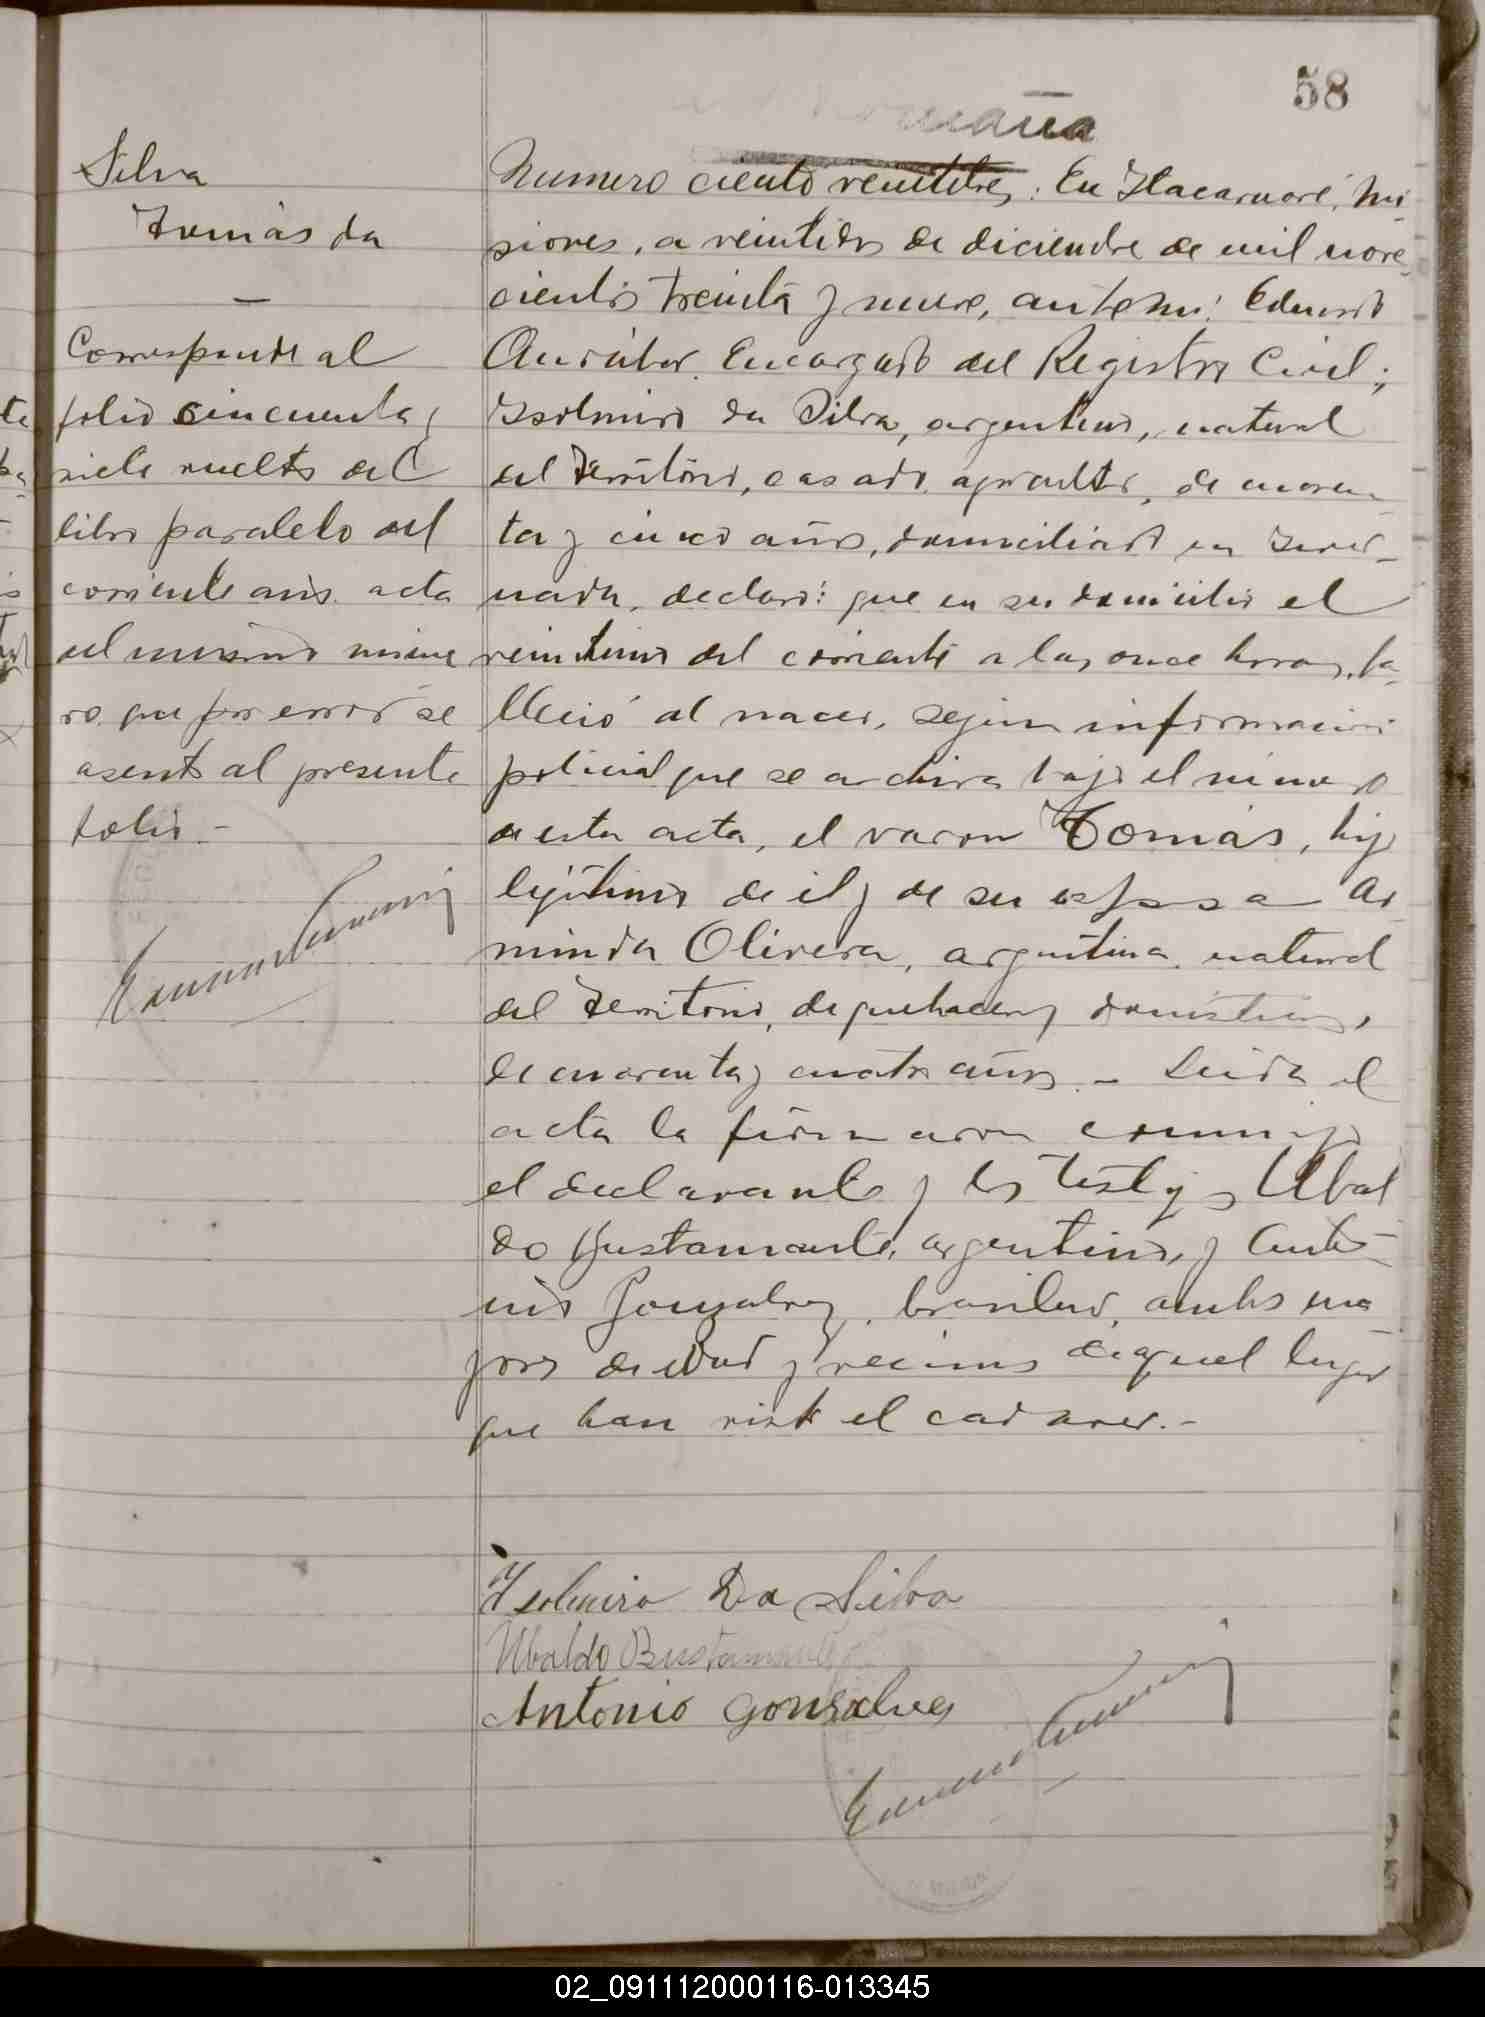 58
Silva
Tomás da
Corresponde al
folio cincuenta y
siete vuelto del
libro paralelo del
corriente año. acta
del mismo núme
ro, que por error se
asentó al presente
folio.-
Numero ciento veintitres: En Itacaruaré, Mi-
siones, a veintidos de diciembre de mil nove-
cientos treinta y nueve, ante mi: Eduardo
Encargado del Registro Civil;
Isolmiro da Silva, argentino, natural
del Territorio, casado, agricultor, de cuaren-
ta y cinco años, domiciliado en Inver-
nada, declaró: que en su domicilio el
veintiuno del corriente a las once horas, fa-
lleció al nacer, según información
policial que se archiva bajo el número
de esta acta, el varon Tomás, hijo
legítimo de él y de su esposa Ar
minda Olivera, argentina, natural
del Territorio, de quehaceres domésticos,
de cuarenta y cuatro años.- Leida el
acta la firmaron conmigo
el declarante y los testigos Ubal
do Bustamante, argentino, y Anto-
nio Gonzalvez, brasilero, ambos ma
yores de edad y vecinos de aquel lugar
que han visto el cadaver.-
Isolmiro Da Silva
Ubaldo Bustamante
Antonio Gonsalves
02_091112000116-013345